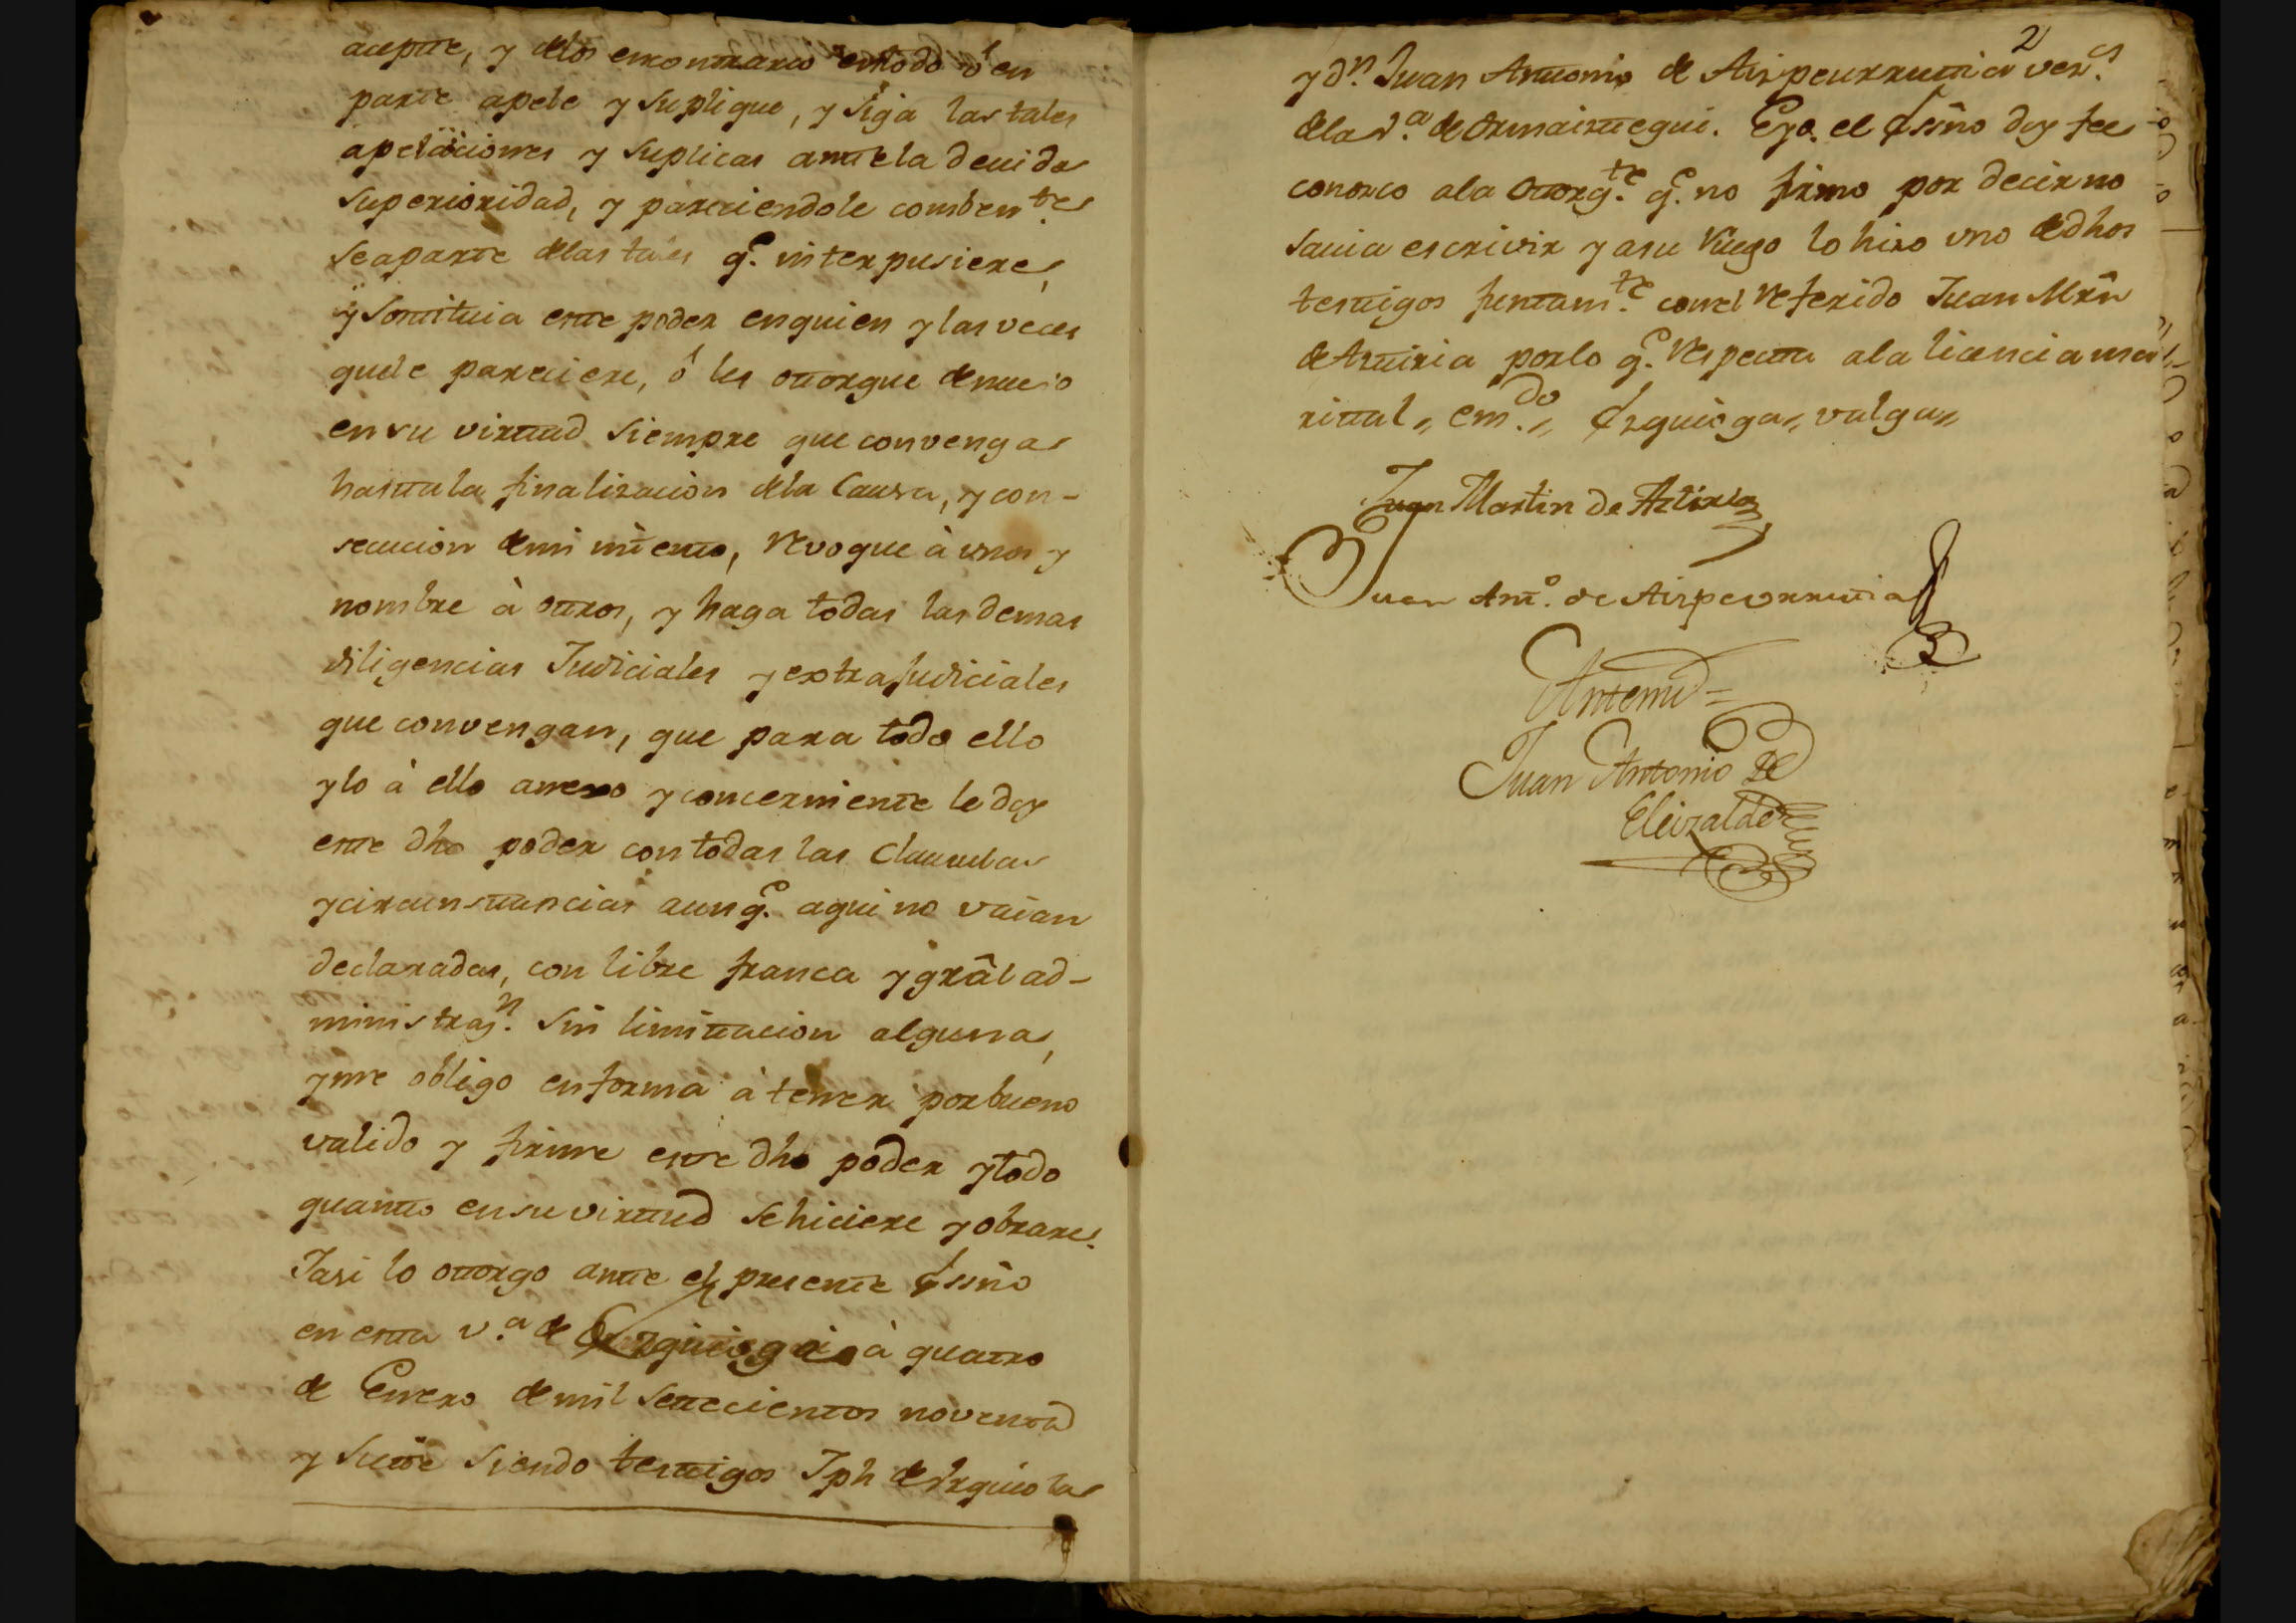 acepte, y delos encontrario entodo ò en
parte apele y suplique, y siga las tales
apelaciones y suplicas ante la deuida
superioridad, y pareciendole comben.te
se aparte delas tales q.e interpusiere,
y sostituia este poder en quien y las veces
quele pareciere, ò les otorgue de nuevo
en su virtud siempre que convenga
hasta la finalizacion dela Causa, y con-
secucion demi intento, revoque à unos y
nombre à otros, y haga todas las demas
diligencias Judiciales y extrajudiciales
que convengan, que para todo ello
y lo à ello anexo y concerniente le doy
este dho poder con todas las Clausulas
y circunstancias aunq.e aqui no vaian
declaradas, con libre franca y grâl ad-
ministraz.n sin limitacion alguna,
y me obligo en forma à tener por bueno
valido y firme este dho poder y todo
quanto en su virtud se hiciere y obrare.
Iasi lo otorgo ante el presente Essño
en esta v.a de Ezquioga à quatro
de Enero de mil setecientos noventa
y siete siendo testigos Jph de Urquiola
2
y dn. Juan Antonio de Aizpeurrutia vez.s
dela V.a de Ormaiztegui. E yo el Essño doy fee
conozco ala Otorg.te q.e no firmo por decir no
sauia escrivir y asu ruego lo hizo uno de dhos
testigos juntam.te con el referido Juan Mrñ
de Astiria por lo q.e respecta ala licencia ma
rital,, em.do,, Ezquioga,, valga,,
Juan Martin de Astiria
Juan Ant.o de Aizpeurrutia
Antemi=
Juan Antonio de
Eleizalde